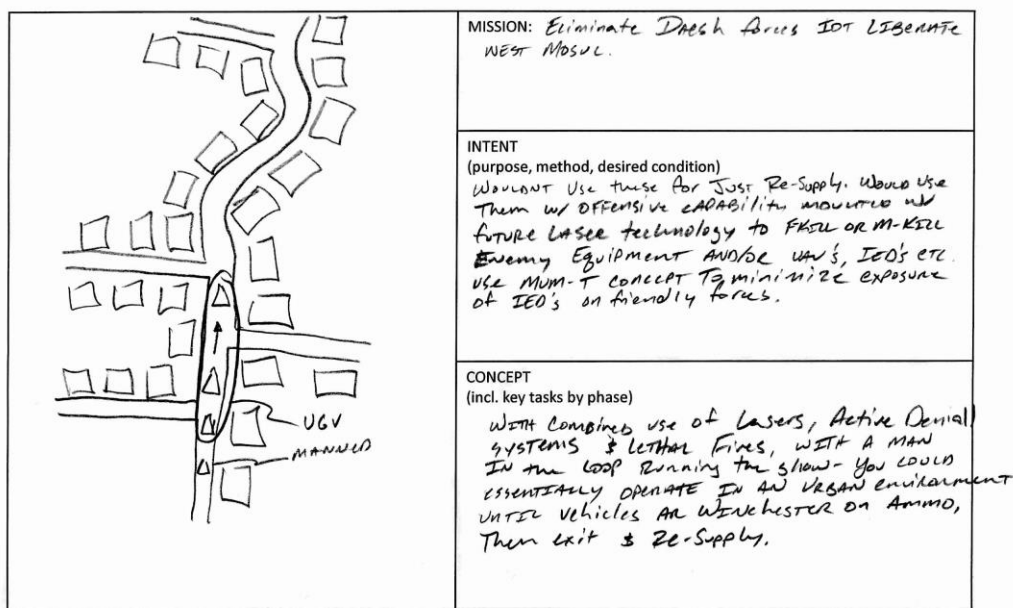 UGV
MANNED
MISSION: Eliminate Daesh forces IOT LIBERATE
WEST MOSUL.
INTENT
(purpose, method, desired condition)
WOULDNT USE these for JUST Re-Supply. Would use
Them w/ OFFENSIVE CAPABILITY MOUNTED w/
future LASER technology to FKILL OR M-KILL
Enemy Equipment AND/OR UAV's, IED's etc.
USE MUM-T CONCEPT To minimize exposure
of IED's on friendly forces.
CONCEPT
(incl. key tasks by phase)
WITH Combined use of Lasers, Active Denial
systems $ LETHAL Fires, WITH A MAN
IN the LOOP Running the show - You COULD
ESSENTIALLY OPERATE IN AN URBAN environment
UNTIL Vehicles AR WINCHESTER ON AMMO,
Then exit $ Re-Supply.